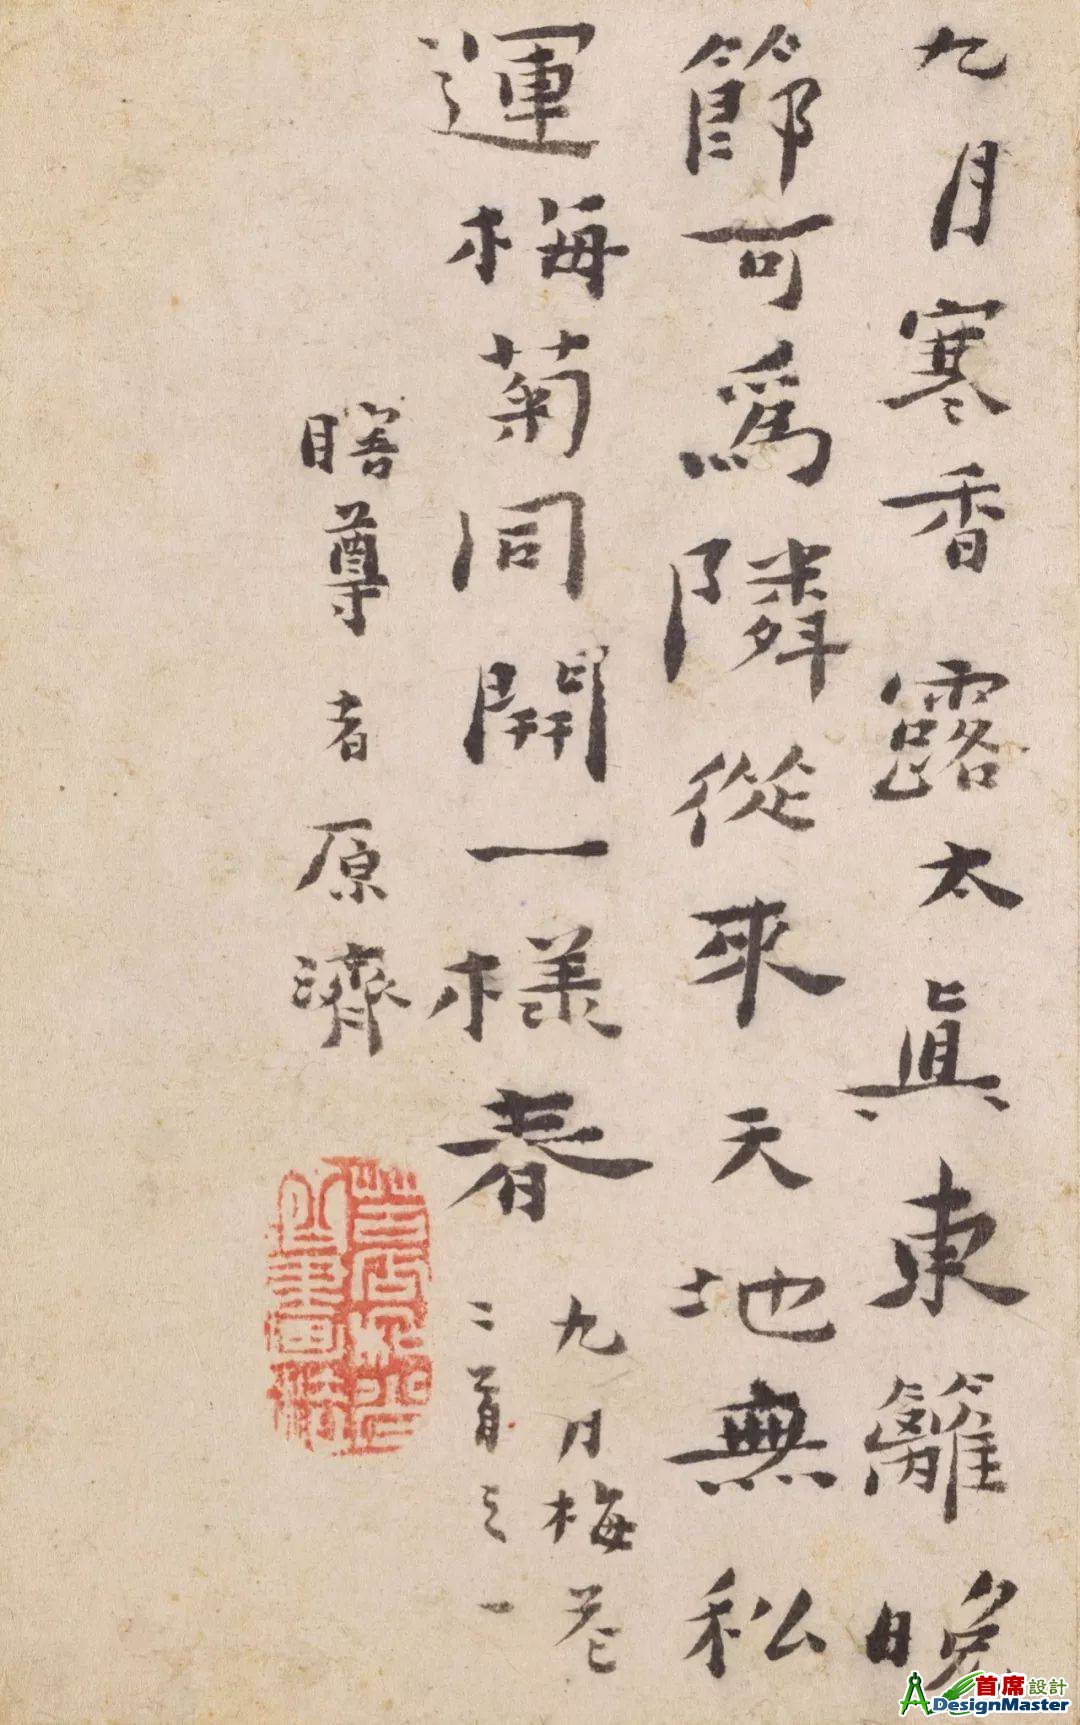 九月寒香露太真東籬晚
節可為隣從來天地無私
運梅菊同開一樣春
九月梅花
二首之一
瞎尊者原濟
首席設計
DesignMaster